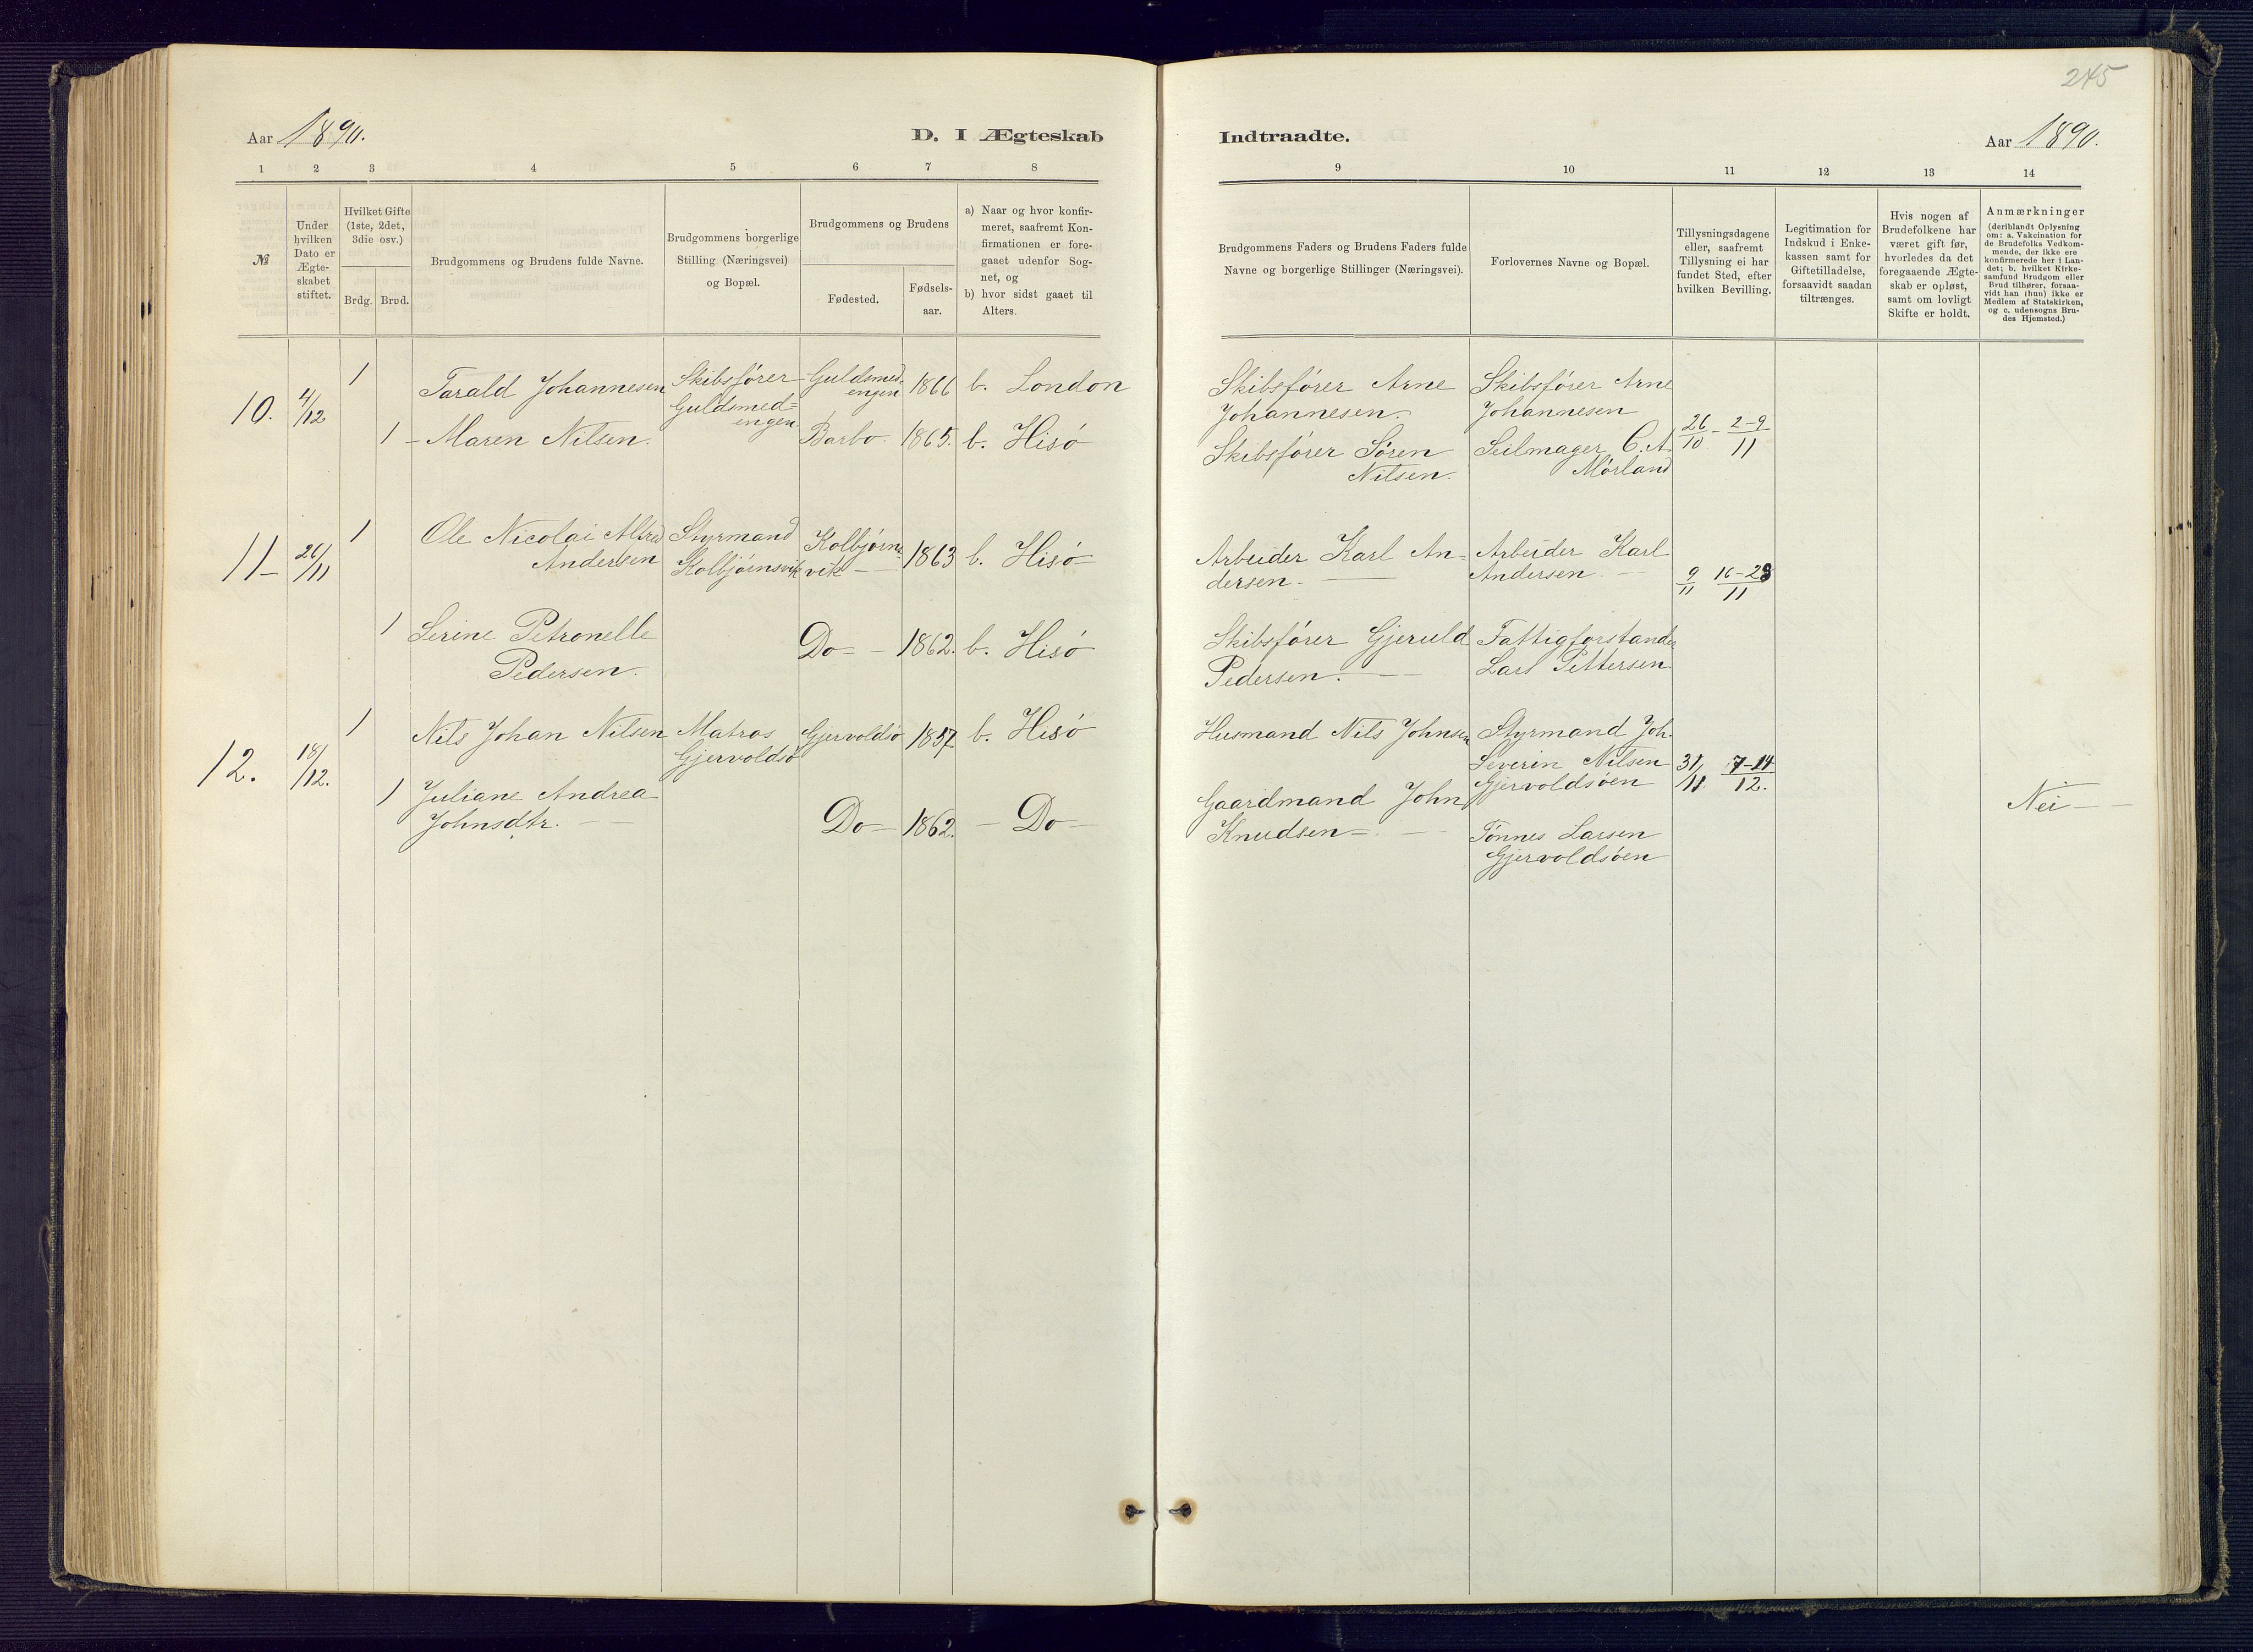 245
Aar 1890.
D. I Ægteskab
Indtraadte.
Aar 1890.
1 2 3 4 5 6 7 8
9 10 11 12 13 14
№
Under
hvilken
Dato er
Ægte-
skabet
stiftet.
Hvilket Gifte
(1ste, 2det,
3die osv.)
Brdg. Brud.
Brudgommens og Brudens fulde Navne.
Brudgommens borgerlige
Stilling (Næringsvei)
og Bopæl.
Brudgommens og Brudens
Fødested.
Fødsels-
aar.
a) Naar og hvor konfir-
meret, saafremt Kon-
firmationen er fore-
gaaet udenfor Sog-
net, og
b) hvor sidst gaaet til
Alters.
Brudgommens Faders og Brudens Faders fulde
Navne og borgerlige Stillinger (Næringsvei).
Forlovernes Navne og Bopæl.
Tillysningsdagene
eller, saafremt
Tillysning ei har
fundet Sted, efter
hvilken Bevilling.
Legitimation for
Indskud i Enke-
kassen samt for
Giftetilladelse,
forsaavidt saadan
tiltrænges.
Hvis nogen af
Brudefolkene har
været gift før,
hvorledes da det
foregaaende Ægte-
skab er opløst,
samt om lovligt
Skifte er holdt.
Anmærkninger
(deriblandt Oplysning
om: a. Vakcination for
de Brudefolks Vedkom-
mende, der ikke ere
konfirmerede her i Lan-
det; b. hvilket Kirke-
samfund Brudgom eller
Brud tilhører, forsaa-
vidt han (hun) ikke er
Medlem af Statskirken,
og c. udensogns Bru-
des Hjemsted.)
10. 4/12 1
Tarald Johannesen
Skibsfører
Guldsmed=
engen
Guldsmed-
engen
1866 b. London
Skibsfører Arne
Johannesen.
Skibsfører Arne
Johannesen
26/10 - 2-9/11
1 - Maren Nilsen.
Barbo. 1865. b. Hisö
Skibsfører Sören
Nilsen.
Seilmager C. A.
Mörland
11- 26/11 1
Ole Nicolai Alfred
Andersen
Styrmand
Kolbjörnsvik
Kolbjörns-
vik
1863 b. Hisö
Arbeider Karl An=
dersen.
Arbeider Karl
Andersen.
9/11 16-23/11
1 Serine Petronelle
Pedersen.
Do 1862. b. Hisö
Skibsfører Gjeruld
Pedersen.
Fattigforstander
Lars Pettersen
12. 18/12. 1
Nils Johan Nilsen
Matros
Gjervoldsö
Gjervoldsö 1857. b. Hisö
Husmand Nils Johnsen
Styrmand Joh.
Severin Nilsen
Gjervoldsöen
31/11 7-14/12.
1 Juliane Andrea
Johnsdtr.
Do 1862. - Do
Gaardmand John
Knudsen
Tönnes Larsen
Gjervoldsöen
Nei